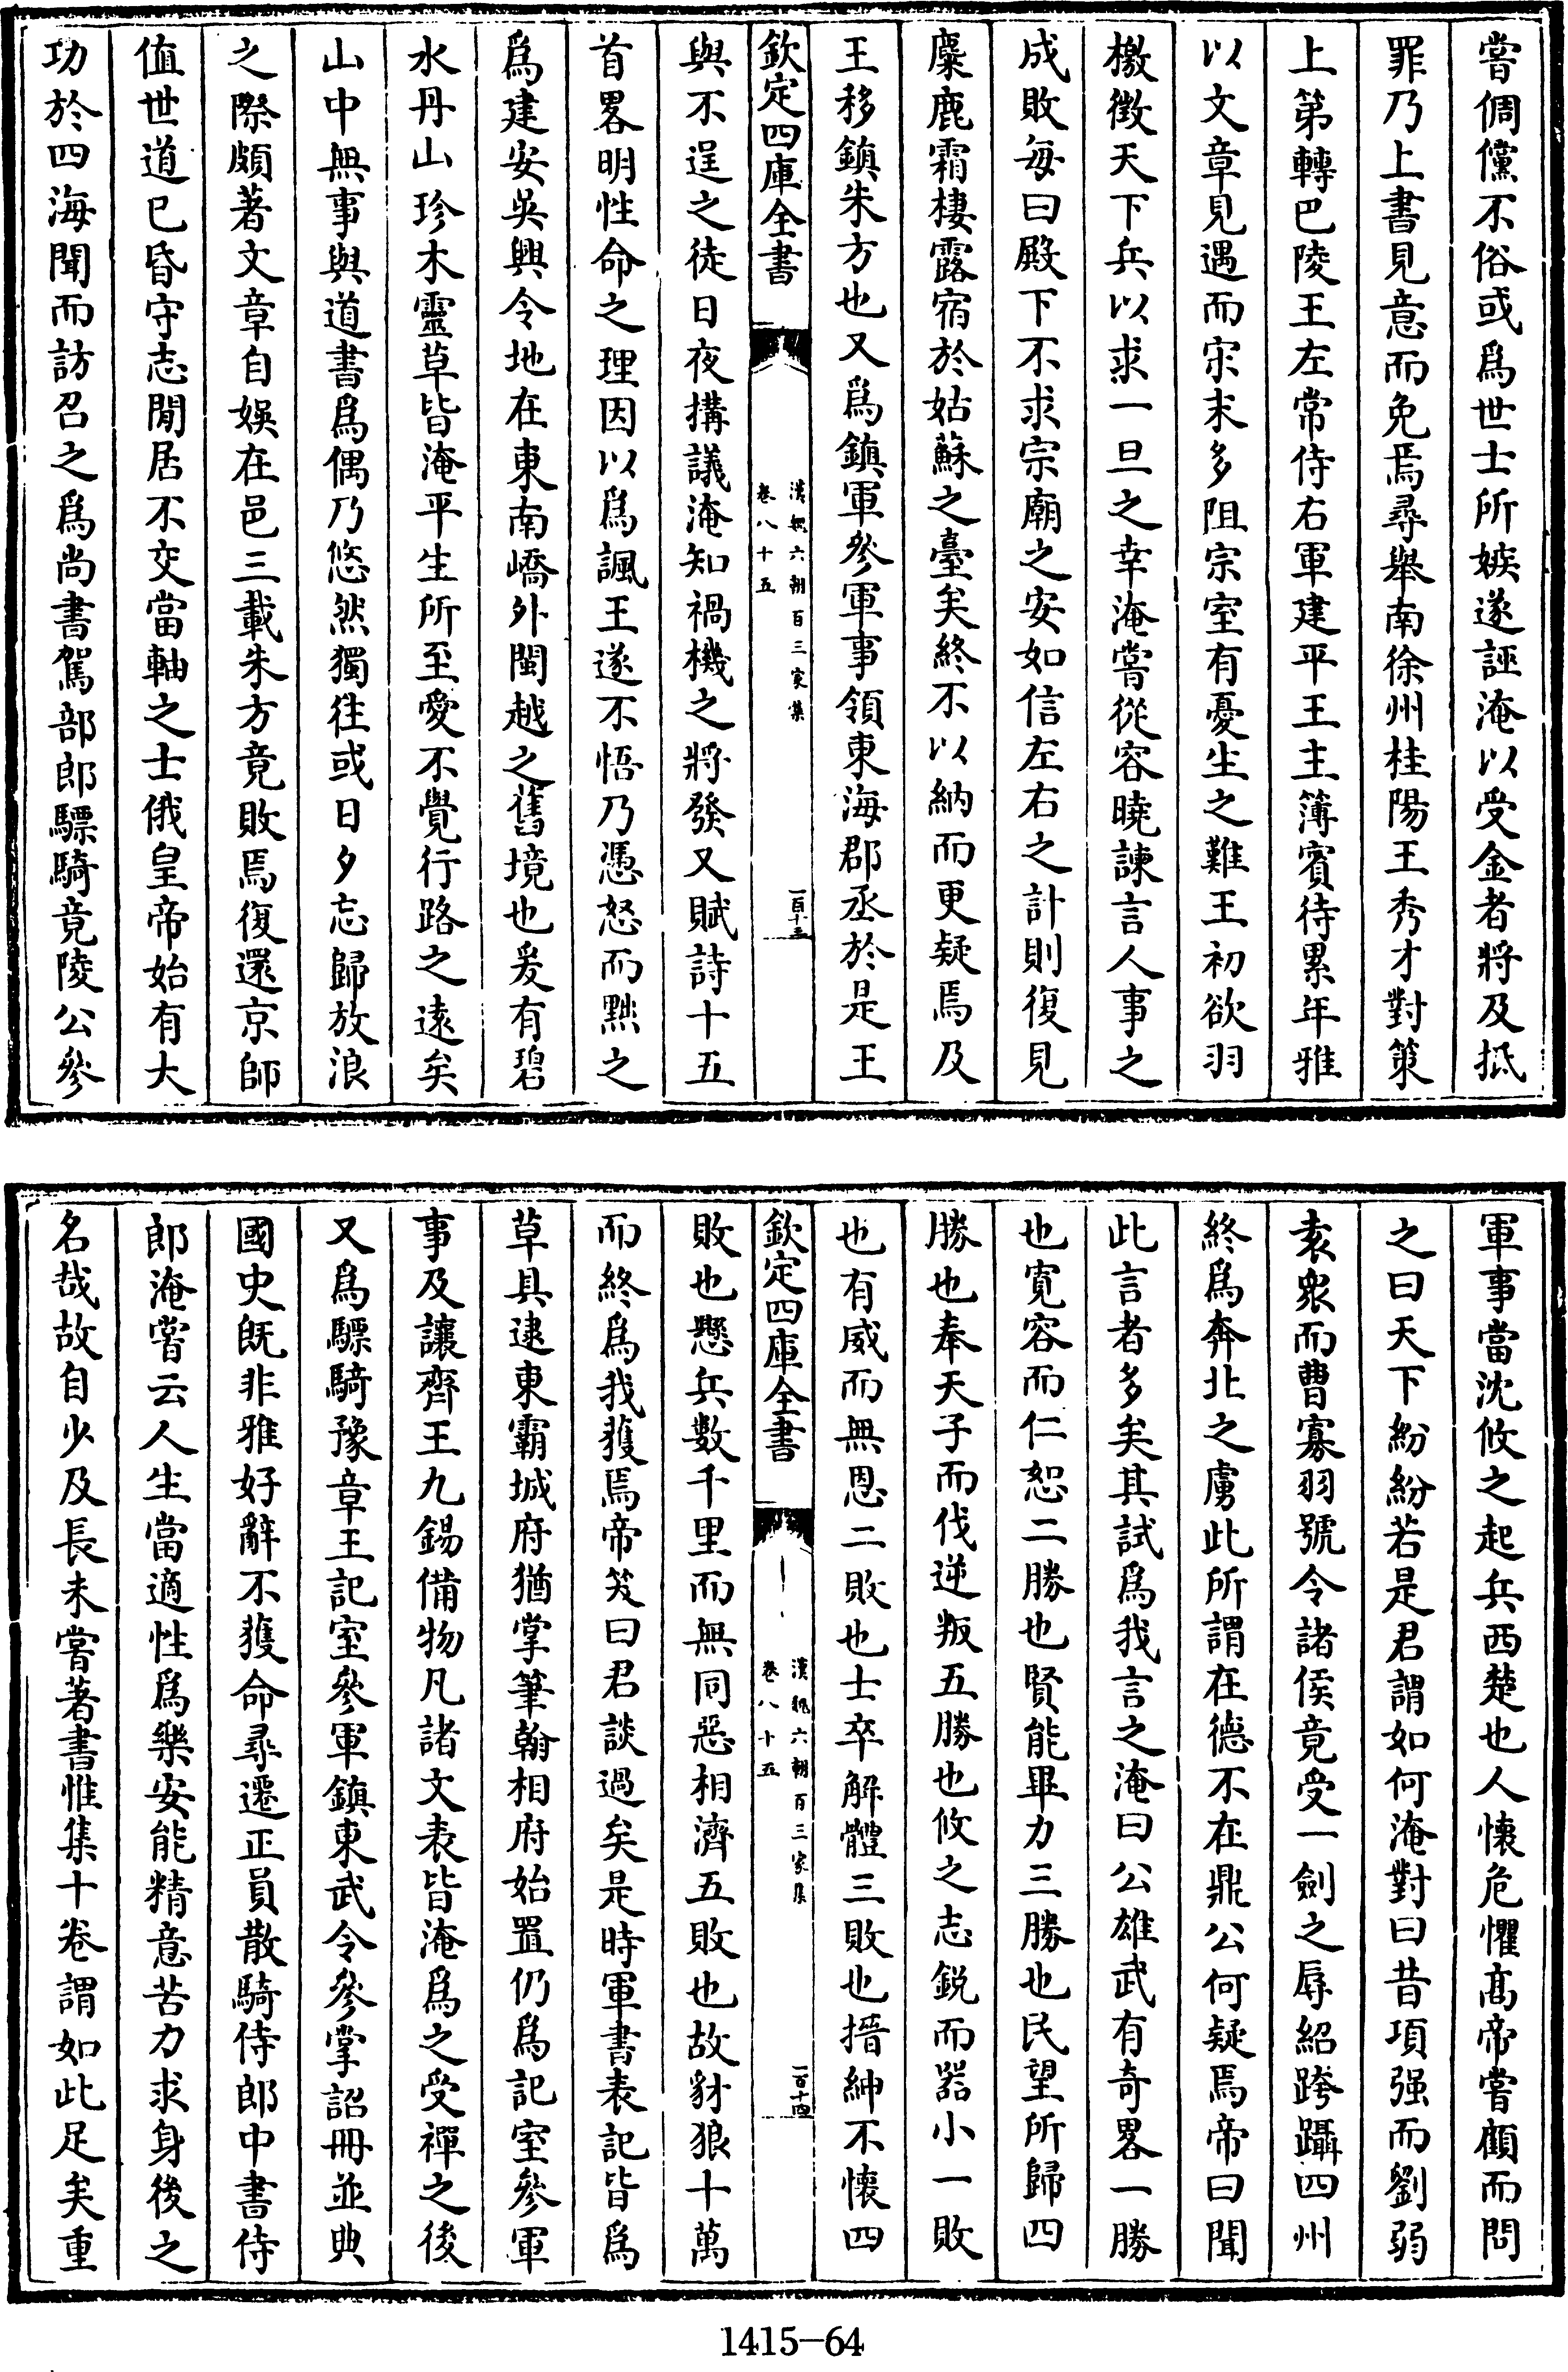 嘗倜儻不俗或爲世士所嫉遂誣淹以受金者將及抵
罪乃上書見意而免焉尋舉南徐州桂陽王秀才對策
上第轉巴陵王左常侍右軍建平王主簿賓待累年雅
以文章見遇而宋末多阻宗室有憂生之難王初欲羽
檄徴天下兵以求一旦之幸淹嘗從容曉諫言人事之
成敗每曰殿下不求宗廟之安如信左右之計則復見
麋鹿霜棲露宿於姑蘇之臺矣終不以納而更疑焉及
王移鎮朱方也又爲鎮軍參軍事領東海郡丞於是王
欽定四庫全書
漢魏六朝百三家集
卷八十五
一百十三
與不逞之徒日夜搆議淹知禍機之將發又賦詩十五
首畧明性命之理因以爲諷王遂不悟乃憑怒而黜之
爲建安吳興令地在東南嶠外閩越之舊境也爰有碧
水丹山珍木靈草皆淹平生所至愛不覺行路之遠矣
山中無事與道書爲偶乃悠然獨往或日夕忘歸放浪
之際頗著文章自娛在邑三載朱方竟敗焉復還京師
值世道已昏守志閒居不交當軸之士俄皇帝始有大
功於四海聞而訪召之爲尚書駕部郎驃騎竟陵公參
軍事當沈攸之起兵西楚也人懷危懼髙帝嘗顧而問
之曰天下紛紛若是君謂如何淹對曰昔項强而劉弱
袁衆而曹寡羽號令諸侯竟受一劍之辱紹跨躡四州
終爲奔北之虜此所謂在德不在鼎公何疑焉帝曰聞
此言者多矣其試爲我言之淹曰公雄武有奇畧一勝
也寛容而仁恕二勝也賢能畢力三勝也民望所歸四
勝也奉天子而伐逆叛五勝也攸之志鋭而器小一敗
也有威而無恩二敗也士卒解體三敗也搢紳不懷四
欽定四庫全書
漢魏六朝百三家集
卷八十五
一百十四
敗也懸兵數千里而無同惡相濟五敗也故豺狼十萬
而終爲我獲焉帝笑曰君談過矣是時軍書表記皆爲
草具逮東霸城府猶掌筆翰相府始置仍爲記室參軍
事及讓齊王九錫備物凡諸文表皆淹爲之受禪之後
又爲驃騎豫章王記室參軍鎮東武令參掌詔冊並典
國史既非雅好辭不獲命尋遷正員散騎侍郎中書侍
郎淹嘗云人生當適性爲樂安能精意苦力求身後之
名哉故自少及長未嘗著書惟集十卷謂如此足矣重
1415-64